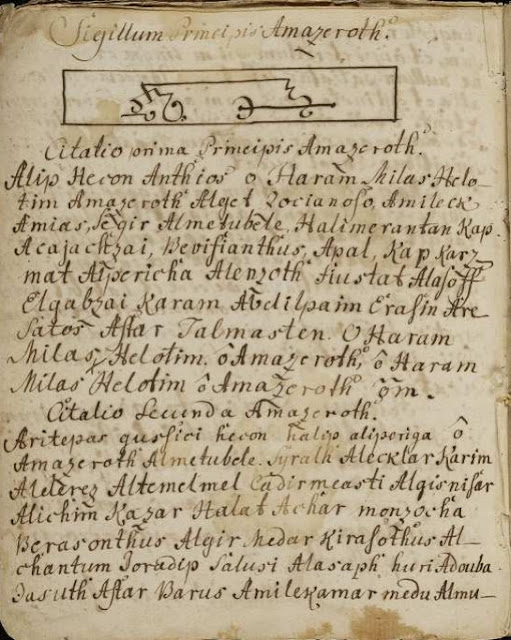 Sigillum Principis Amazeroth.
Citatio prima Principis Amazeroth.
Alip Hecon Anthios o Haram Milas Helo-
tim Amazeroth Alget Zocianoso, Amileck
Amias, Segir Almetubele, Halimerantan Kap
Acajackzai, Bevifianthus, Apal, Kap karz
mat Aipericha Alenzoth Justat Alasoff
Elgabzai Karam Abdilpaim Erasin Are
Satos Astar Talmasten. O Haram
Milas Helotim. ô Amazeroth, ô Haram
Milas Helotim ô Amazeroth
Citatio Secunda Amazeroth.
Aritepas gusfici hecon halip aliponga ô
Amazeroth Almetubele. Syralh Alecklar Karim
Alelerez Altemelmel Cadirmeasti Algisnisar
Alichim Kazar Halat Achar monzocha
Berasonthus Algir Medar Kirasothus Al-
chantum Joradip Salusi Alasaph huri Adouba
Jasuth Astar Barus Amilekamar medu Almu-